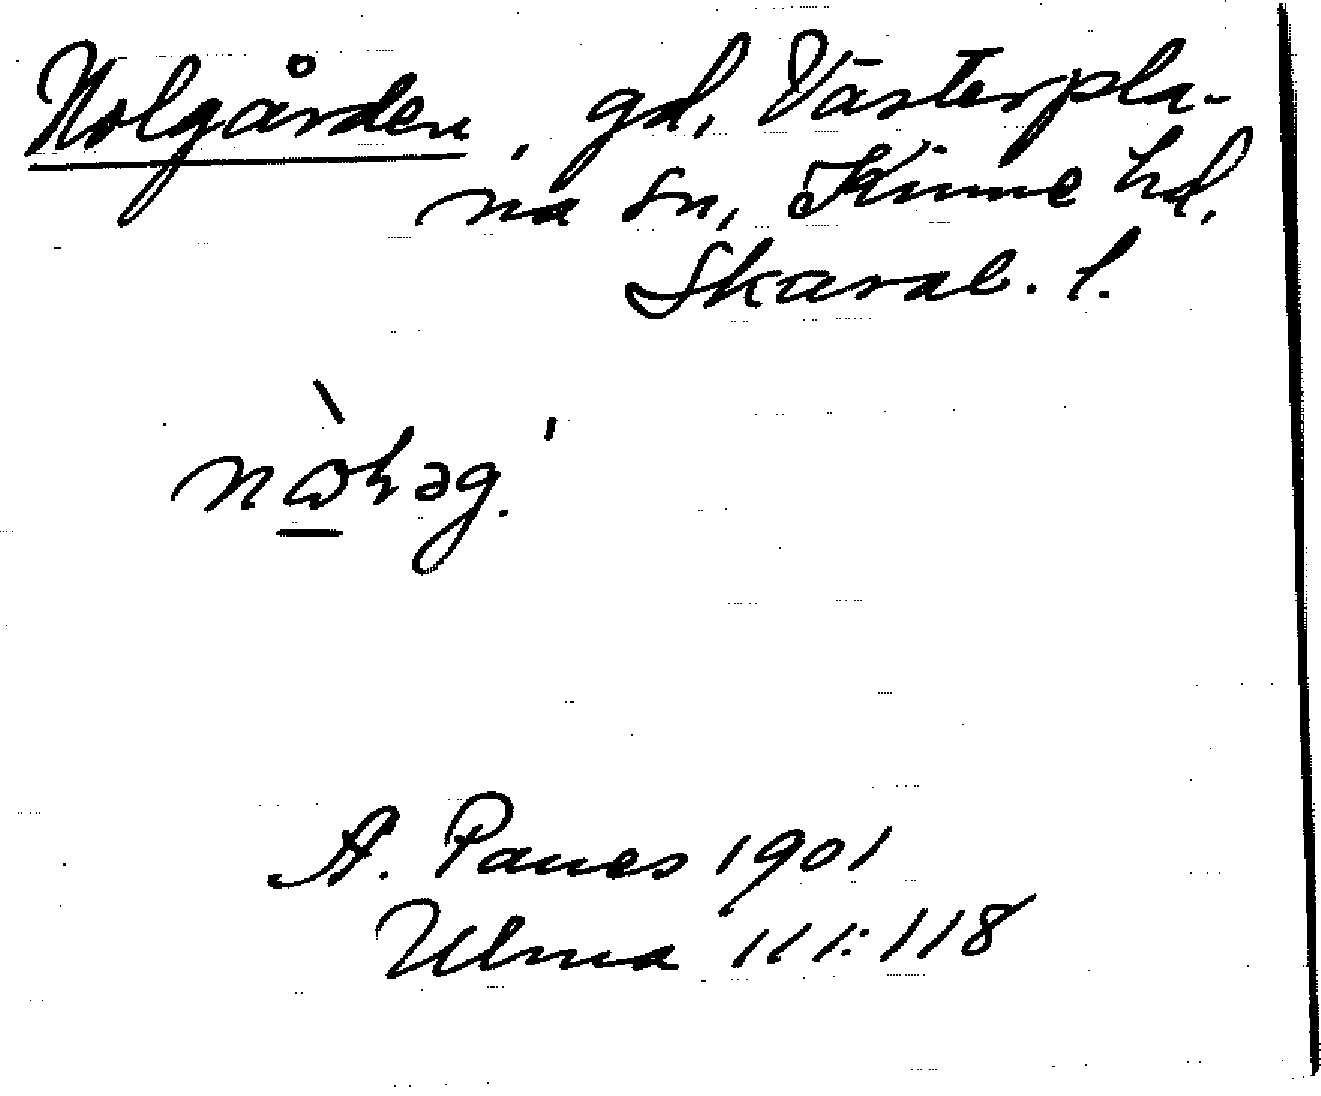 Nolgården, gd, Västerpla-
na sn, Kinne hd,
Skarab. l.
A. Paues 1901
Ulma 111:118